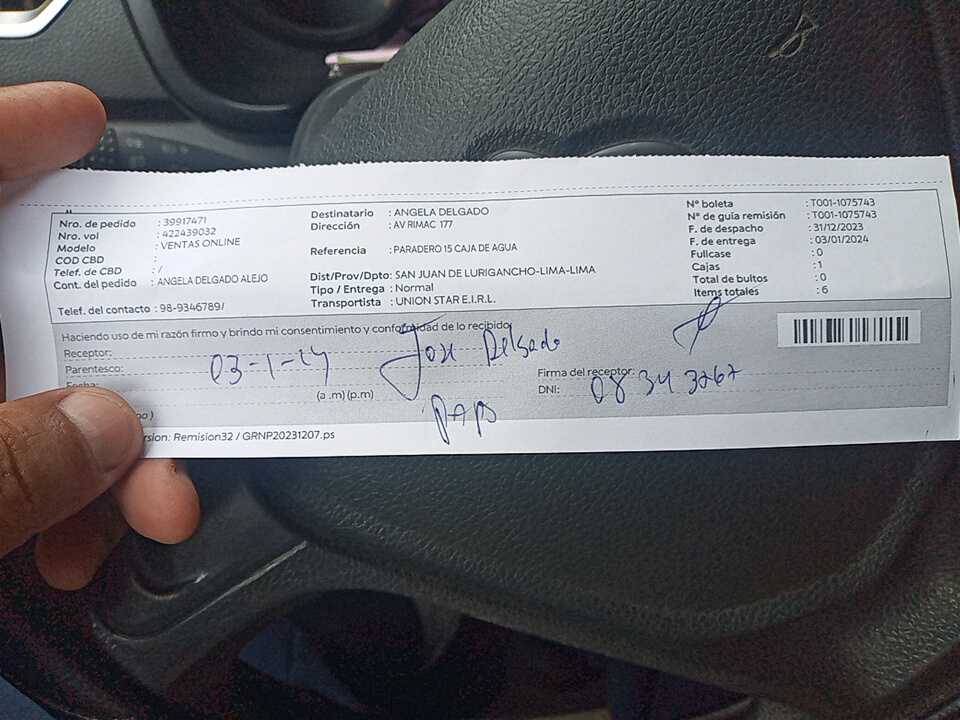 Nro. de pedido : 39917471
Nro. vol : 422439032
Modelo : VENTAS ONLINE
COD CBD :
Telef. de CBD : /
Cont. del pedido : ANGELA DELGADO ALEJO
Telef. del contacto : 98-9346789/
Destinatario : ANGELA DELGADO
Dirección : AV RIMAC 177
Referencia : PARADERO 15 CAJA DE AGUA
Dist/Prov/Dpto: SAN JUAN DE LURIGANCHO-LIMA-LIMA
Tipo / Entrega : Normal
Transportista : UNION STAR E.I.R.L.
N° boleta : T001-1075743
N° de guía remisión : T001-1075743
F. de despacho : 31/12/2023
F. de entrega : 03/01/2024
Fullcase : 0
Cajas : 1
Total de bultos : 0
Items totales : 6
Haciendo uso de mi razón firmo y brindo mi consentimiento y conformidad de lo recibido
Receptor: Jose Delgado
Parentesco:
03-1-24
Fecha:
(a .m) (p.m)
Firma del receptor:
DNI: 08343267
PAPS
rsion: Remision32 / GRNP20231207.ps